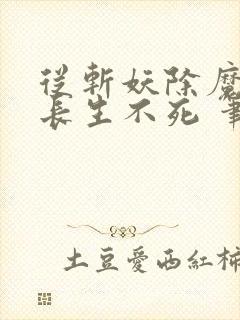 從斬妖除魔
長生不死 筆
土豆愛西紅柿